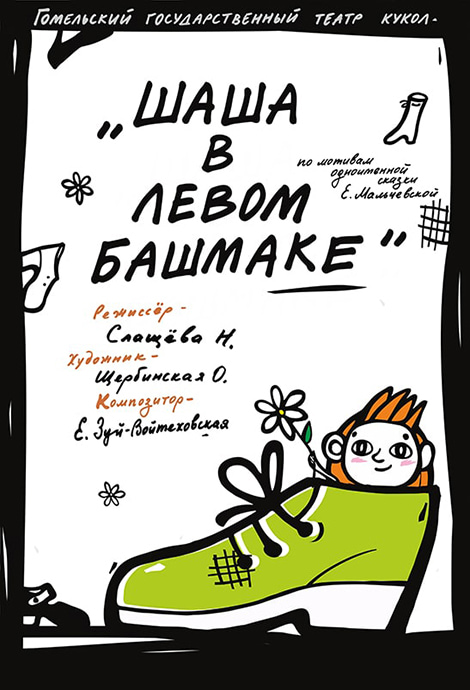 Гомельский государственный театр кукол.
„ШАША
В
ЛЕВОМ
БАШМАКЕ"
по мотивам
одноименной
сказки
Е. Мальчевской
Режиссёр -
Слащёва Н.
Художник -
Щербинская О.
Композитор -
Е. Зуй-Войтеховская